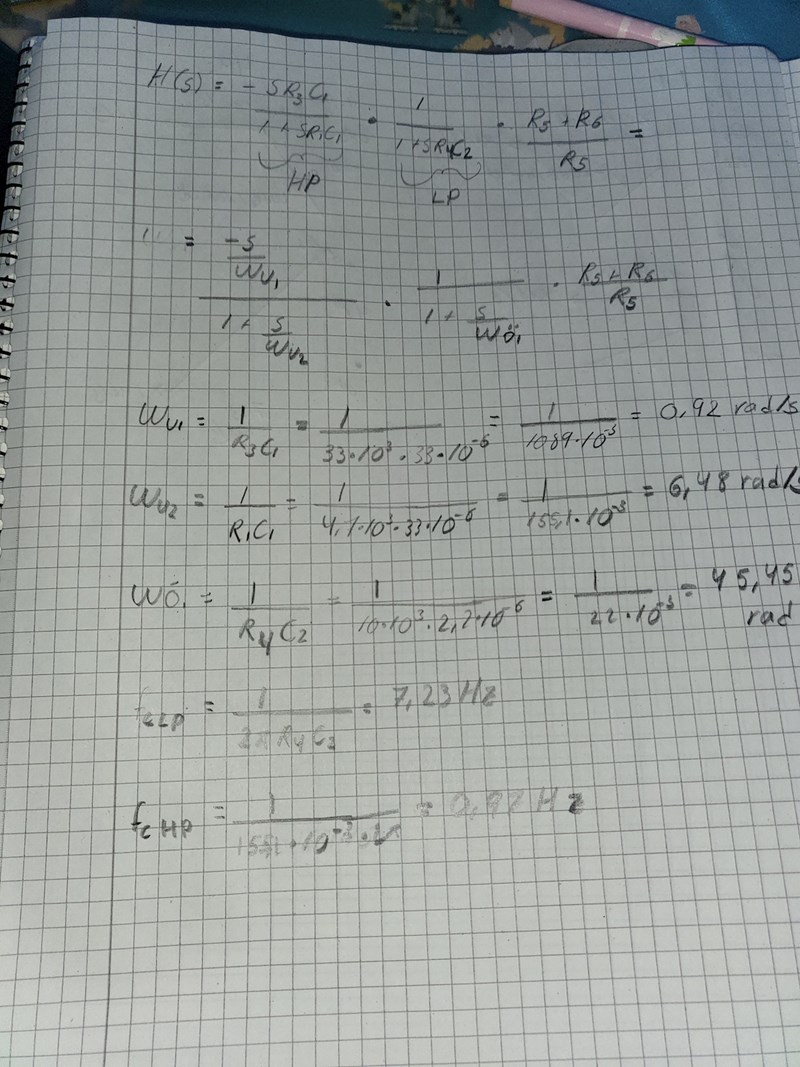 H(s) = - SR₃C₁ / (1 + SR₁C₁) · 1 / (1 + SR₄C₂) · (R₅ + R₆) / R₅ =
HP LP
" = (-s / Wu₁) / (1 + s / Wu₂) · 1 / (1 + s / Wö₁) · (R₅ + R₆) / R₅
Wu₁ = 1 / (R₃C₁) = 1 / (33·10³ · 33·10⁻⁶) = 1 / (1089·10⁻³) = 0,92 rad/s
Wu₂ = 1 / (R₁C₁) = 1 / (4,7·10³·33·10⁻⁶) = 1 / (155,1·10⁻³) = 6,48 rad/s
Wö₁ = 1 / (R₄C₂) = 1 / (10·10³·2,2·10⁻⁶) = 1 / (22·10⁻³) = 45,45
rad
fcLP = 1 / (2π R₄C₂) = 7,23 Hz
fc HP = 1 / (155,1·10⁻³ · = 0,97 Hz